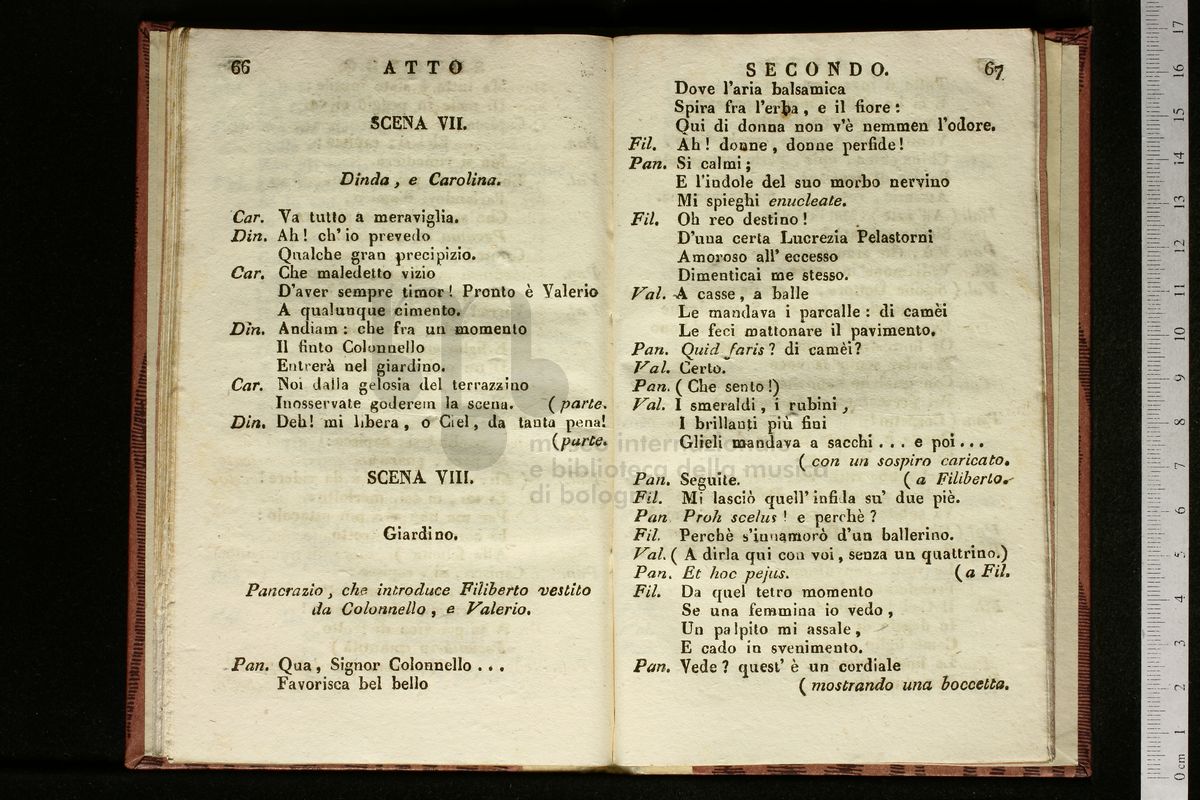 66
ATTO
SCENA VII.
Dinda, e Carolina.
Car. Va tutto a meraviglia.
Din. Ah! ch'io prevedo
Qualche gran precipizio.
Car. Che maledetto vizio
D'aver sempre timor! Pronto è Valerio
A qualunque cimento.
Din. Andiam: che fra un momento
Il finto Colonnello
Entrerà nel giardino.
Car. Noi dalla gelosia del terrazzino
Inosservate goderem la scena. (parte.
Din. Deh! mi libera, o Ciel, da tanta pena!
(parte.
SCENA VIII.
Giardino.
Pancrazio, che introduce Filiberto vestito
da Colonnello, e Valerio.
Pan. Qua, Signor Colonnello . . .
Favorisca bel bello
SECONDO.
67
Dove l'aria balsamica
Spira fra l'erba, e il fiore:
Qui di donna non v'è nemmen l'odore.
Fil. Ah! donne, donne perfide!
Pan. Si calmi;
E l'indole del suo morbo nervino
Mi spieghi enucleate.
Fil. Oh reo destino!
D'una certa Lucrezia Pelastorni
Amoroso all' eccesso
Dimenticai me stesso.
Val. A casse, a balle
Le mandava i parcalle: di camèi
Le feci mattonare il pavimento.
Pan. Quid faris? di camèi?
Val. Certo.
Pan. (Che sento!)
Val. I smeraldi, i rubini,
I brillanti più fini
Glieli mandava a sacchi . . . e poi . . .
(con un sospiro caricato.
Pan. Seguite. (a Filiberto.
Fil. Mi lasciò quell' infida su' due piè.
Pan Proh scelus! e perchè?
Fil. Perchè s'innamorò d'un ballerino.
Val. (A dirla qui con voi, senza un quattrino.)
Pan. Et hoc pejus. (a Fil.
Fil. Da quel tetro momento
Se una femmina io vedo,
Un palpito mi assale,
E cado in svenimento.
Pan. Vede? quest' è un cordiale
(mostrando una boccetta.
museo internazionale
e biblioteca della musica
di bologna
0 cm 1 2 3 4 5 6 7 8 9 10 11 12 13 14 15 16 17